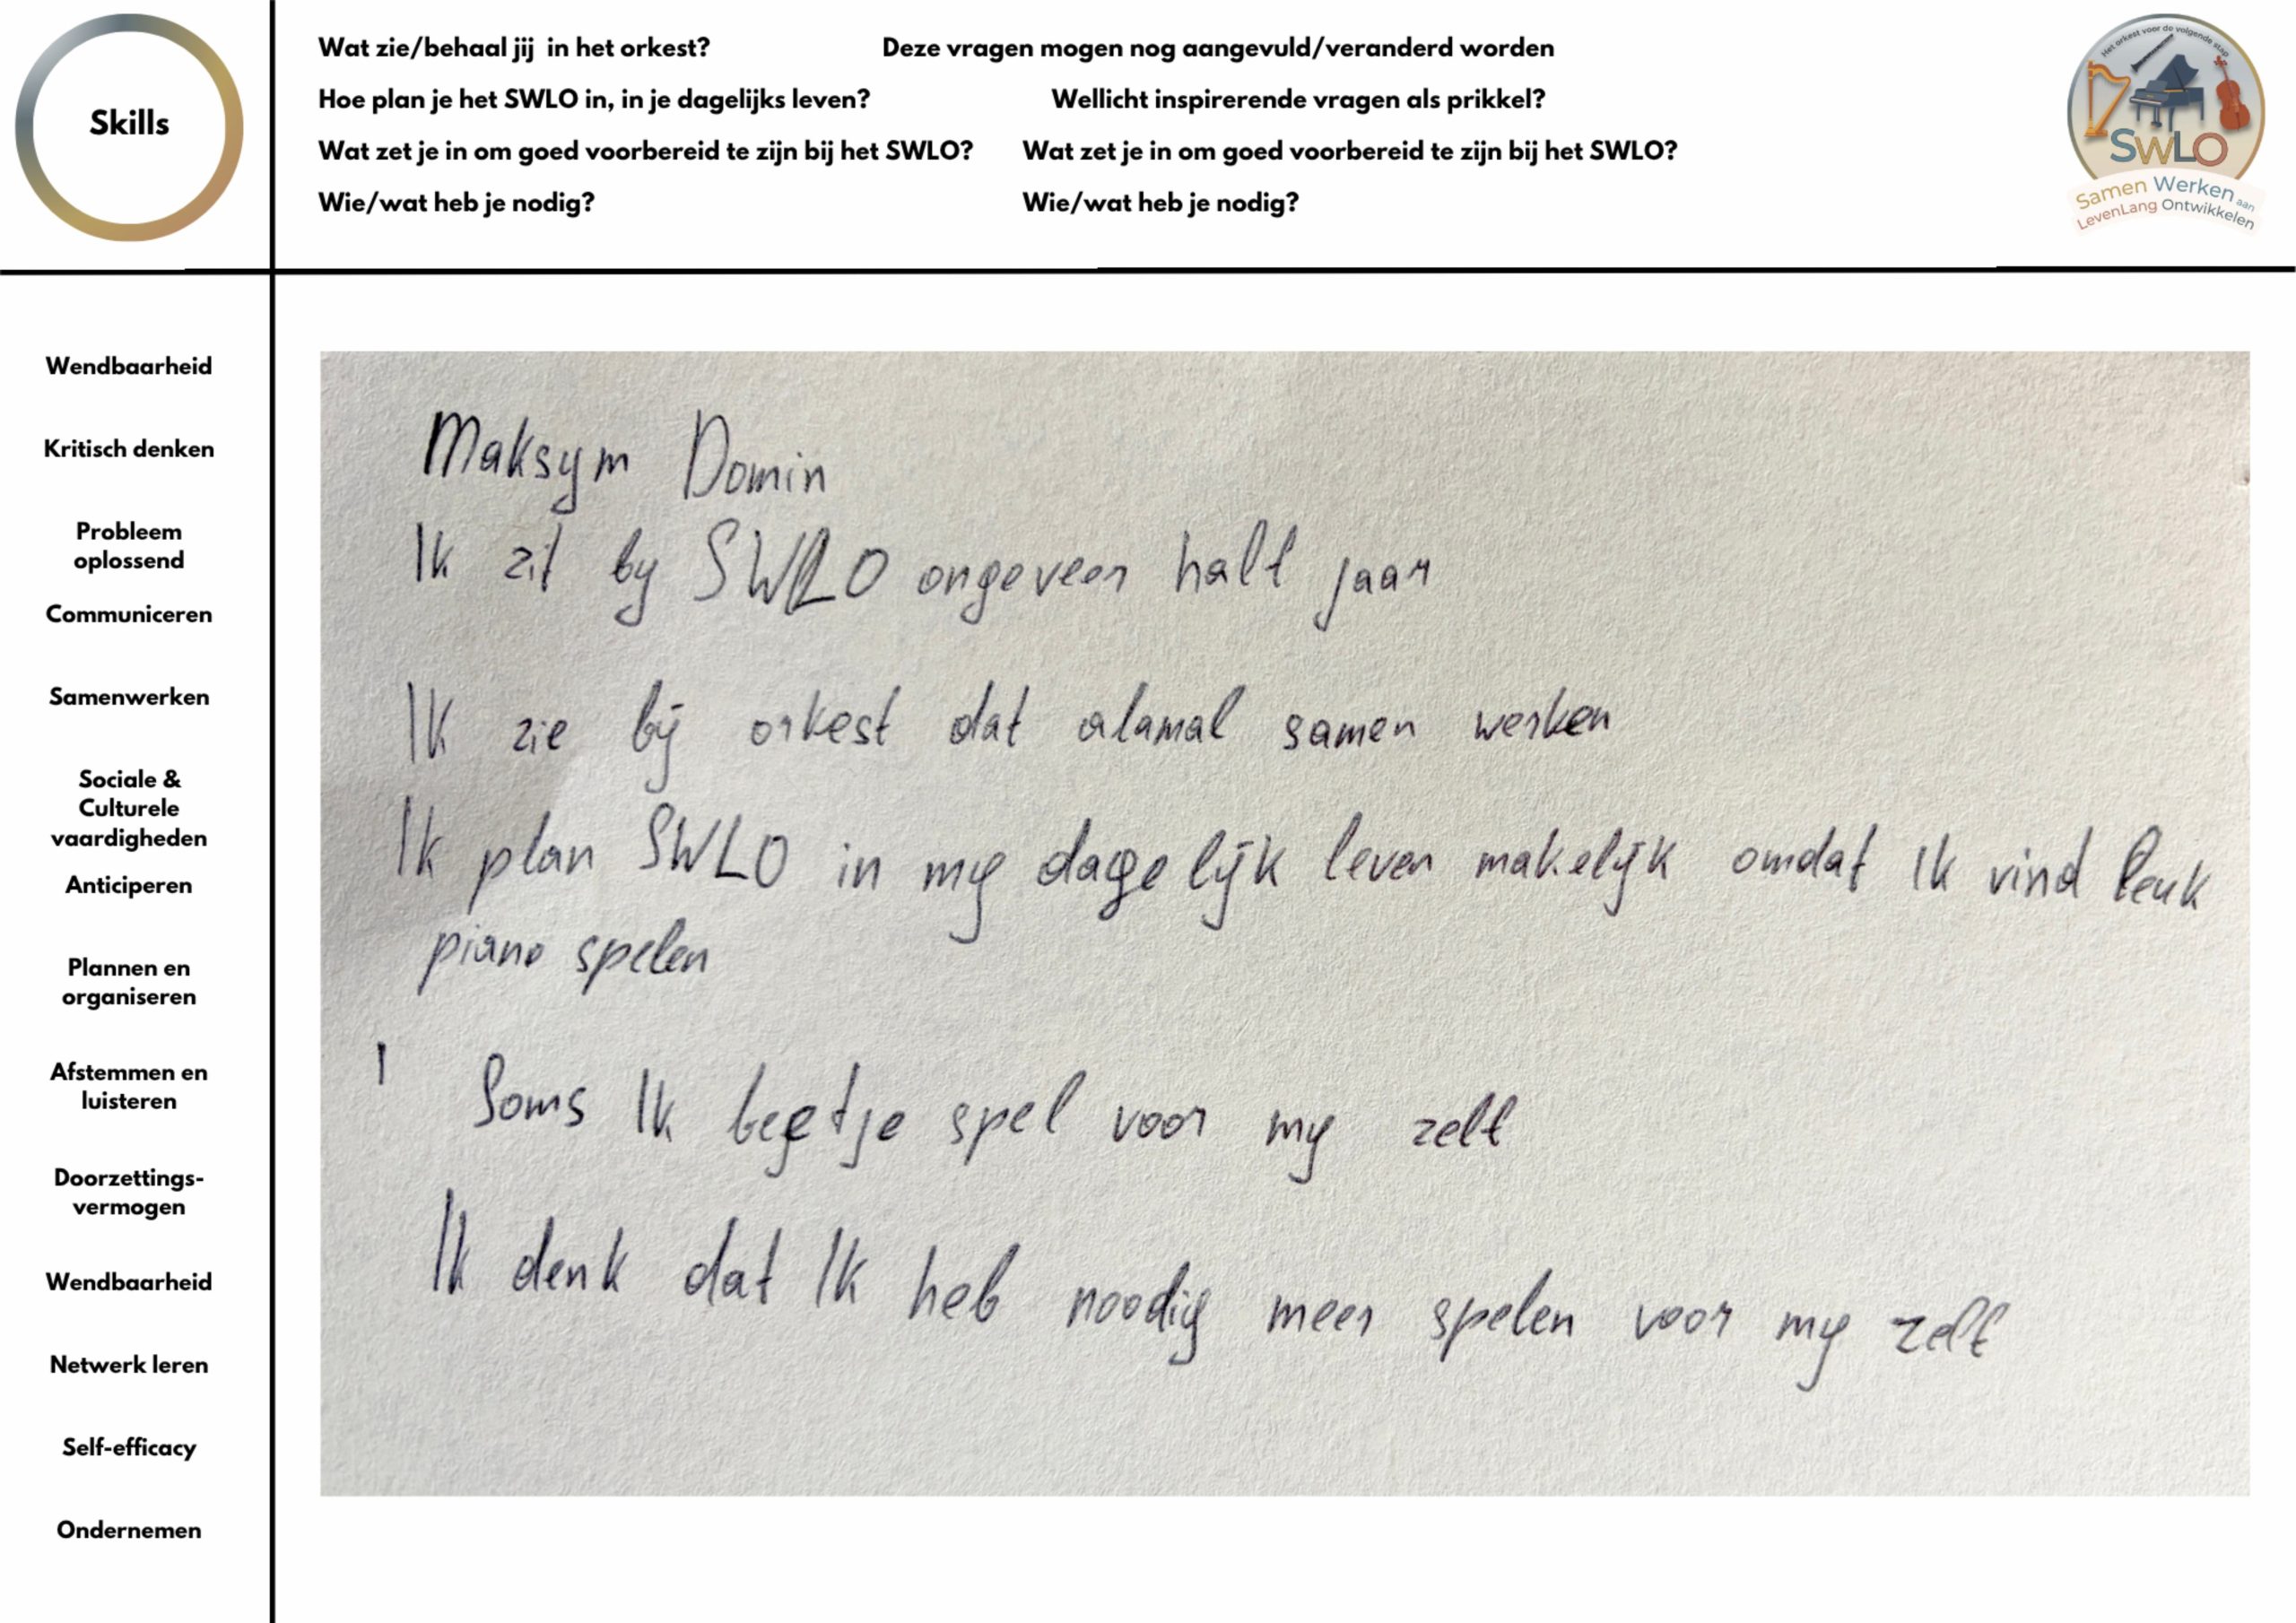 Skills
Wat zie/behaal jij in het orkest?
Deze vragen mogen nog aangevuld/veranderd worden
Hoe plan je het SWLO in, in je dagelijks leven?
Wellicht inspirerende vragen als prikkel?
Wat zet je in om goed voorbereid te zijn bij het SWLO?
Wat zet je in om goed voorbereid te zijn bij het SWLO?
Wie/wat heb je nodig?
Wie/wat heb je nodig?
Het orkest voor de volgende stap
SWLO
Samen Werken aan
LevenLang Ontwikkelen
Wendbaarheid
Kritisch denken
Probleem
oplossend
Communiceren
Samenwerken
Sociale &
Culturele
vaardigheden
Anticiperen
Plannen en
organiseren
Afstemmen en
luisteren
Doorzettings-
vermogen
Wendbaarheid
Netwerk leren
Self-efficacy
Ondernemen
Maksym Domin
Ik zit by SWLO ongeveer half jaar
Ik zie bij orkest dat alamal samen werken
Ik plan SWLO in my dagelijk leven makelijk omdat Ik vind leuk
piano spelen
Soms Ik beetje spel voor my zelf
Ik denk dat Ik heb noodig meer spelen voor my zelf